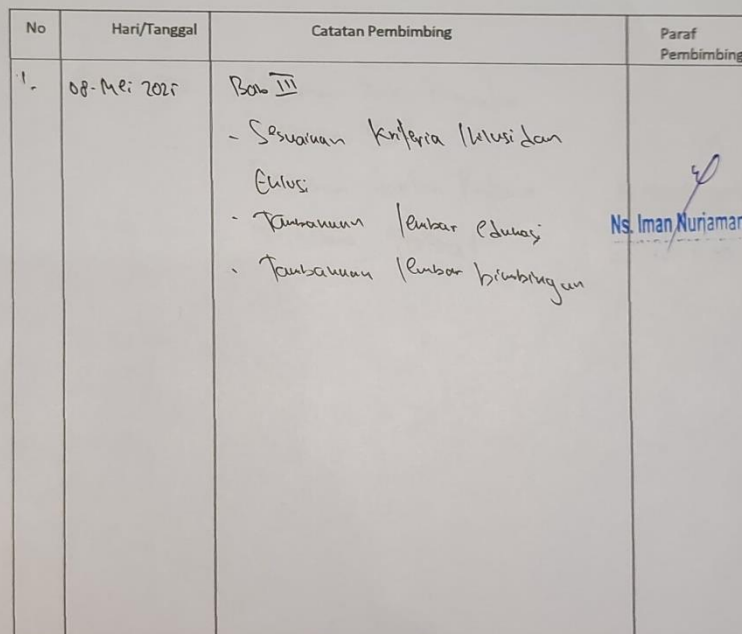 No
Hari/Tanggal
Catatan Pembimbing
Paraf
Pembimbing
1.
08-Mei 2025
Bab III
- Sesuaikan Kriteria Iklusi dan
Eklusi
- Tambahkan lembar edukasi
- Tambahkan lembar bimbingan
Ns. Iman Nurjaman